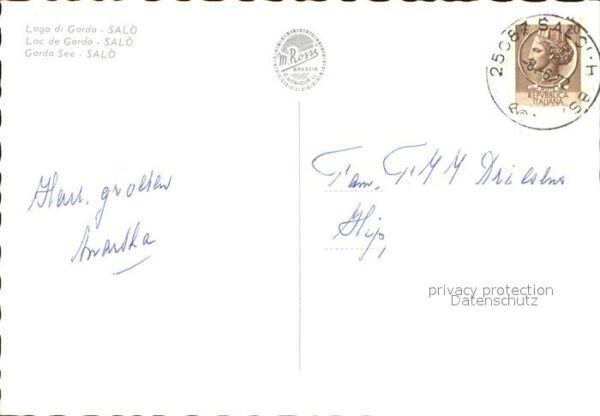 Lago di Garda - SALÒ
Lac de Garda - SALÒ
Garda See - SALÒ
M. Rossi
BRESCIA
25087 SALO
-8.6.72
REPUBBLICA
ITALIANA
Hart. groeten
Martha
Fam. F M M Driesens
privacy protection
Datenschutz